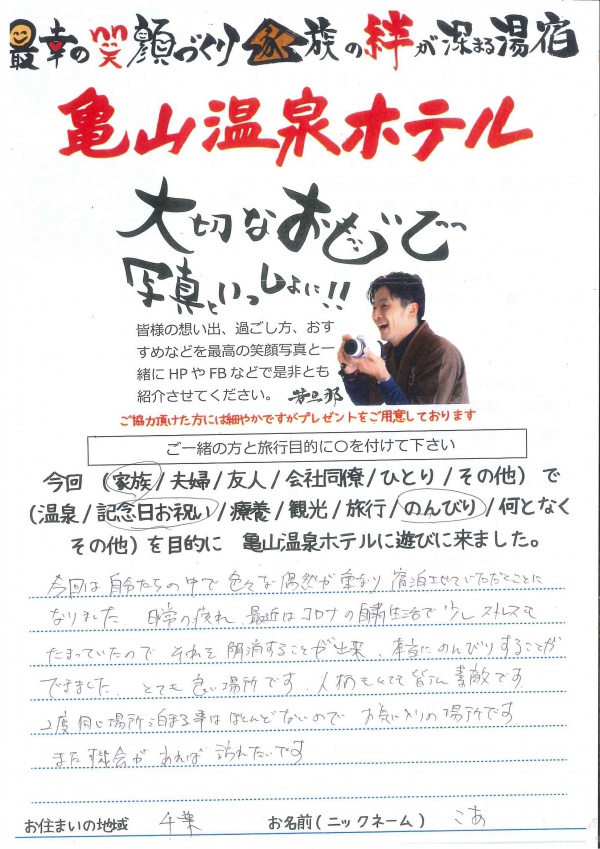 最幸の笑顔づくり 家族の絆が深まる湯宿
亀山温泉ホテル
大切なおもいで
写真といっしょに!!
皆様の想い出、過ごし方、おす
すめなどを最高の笑顔写真と一
緒にHPやFBなどで是非とも
紹介させてください。 若旦那
ご協力頂けた方には細やかですがプレゼントをご用意しております
ご一緒の方と旅行目的に○を付けて下さい
今回 (家族/夫婦/友人/会社同僚/ひとり/その他) で
(温泉/記念日お祝い/療養/観光/旅行/のんびり/何となく
その他) を目的に 亀山温泉ホテルに遊びに来ました。
今回は自分たちの中で色々な偶然が重なり 宿泊させていただくことに
なりました 日常の疲れ 最近はコロナの自粛生活で少しストレスも
たまっていたので それを解消することが出来、本当にのんびりすることが
できました。 とても良い場所です。人柄もとても皆さん素敵です
2度同じ場所泊まる事はほとんどないので お気に入りの場所です
また機会があれば 訪れたいです
お住まいの地域 千葉 お名前(ニックネーム) こあ